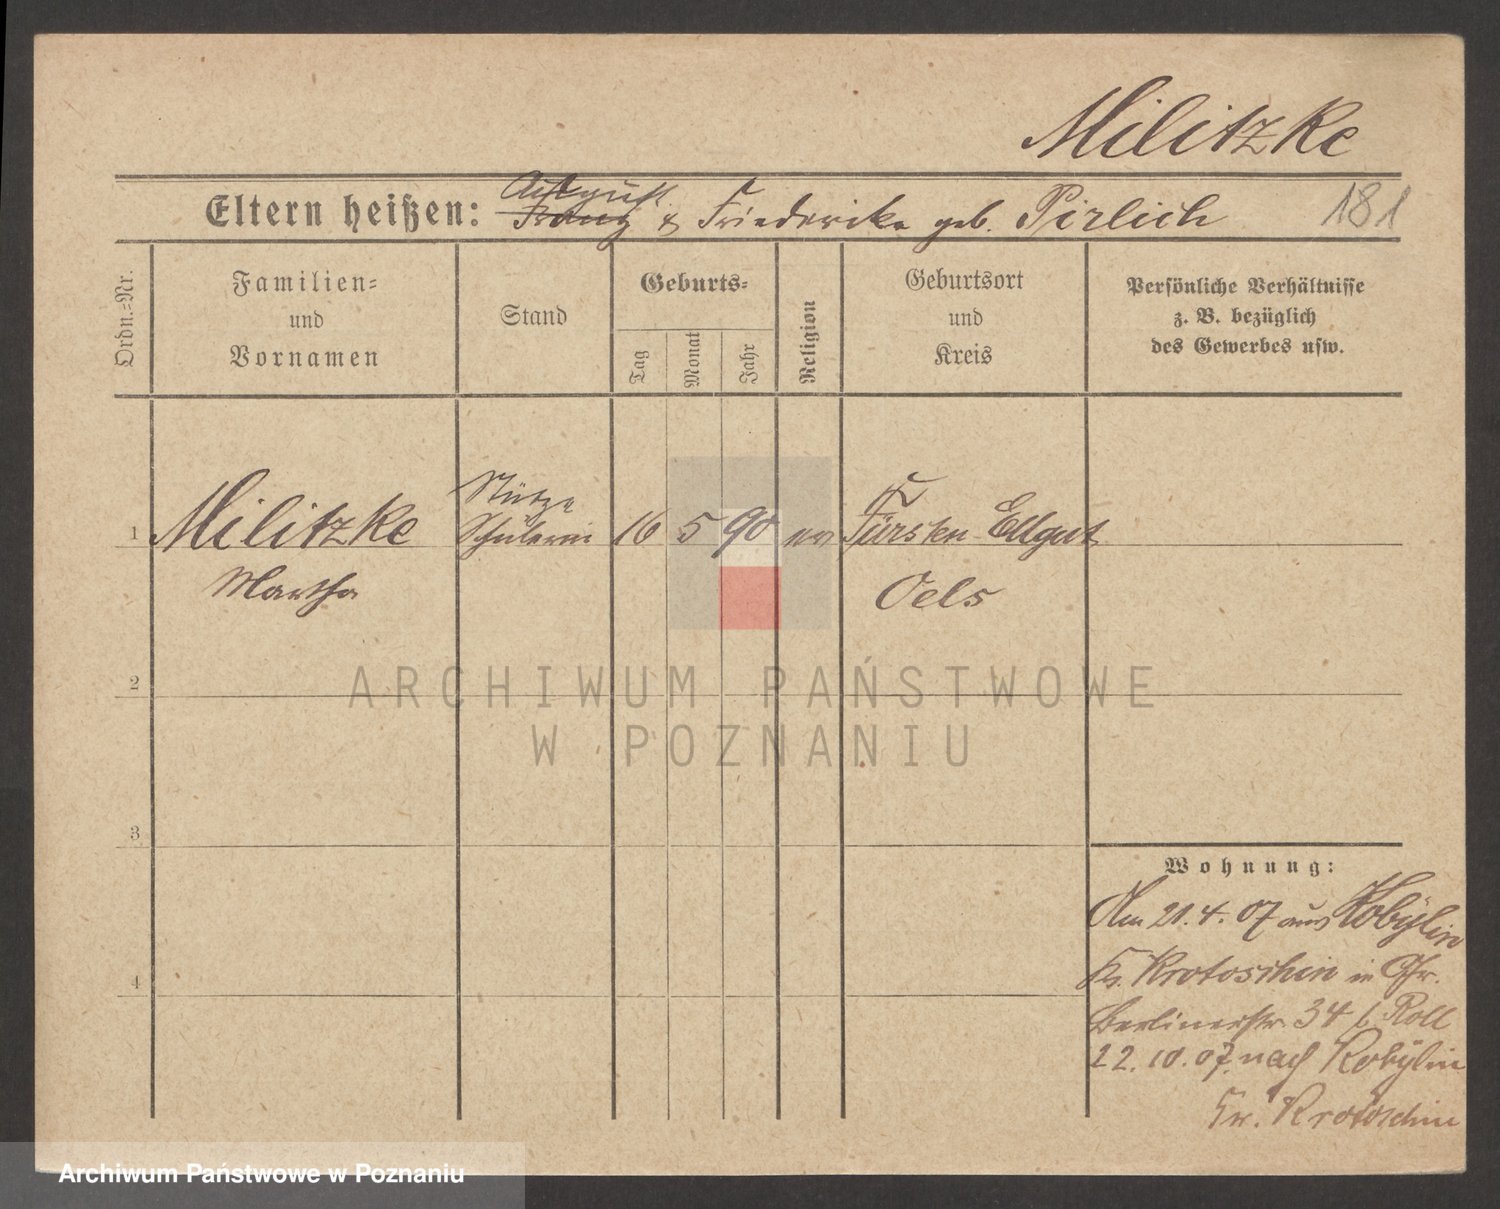 Militzke
Eltern heißen: August Franz & Friederike geb. Pirlich 181
Ordn.=Nr.
Familien=
und
Vornamen
Stand
Geburts=
Tag
Monat
Jahr
Religion
Geburtsort
und
Kreis
Persönliche Verhältnisse
z. B. bezüglich
des Gewerbes usw.
Stütze
1 Militzke Schülerin 16 5 90 ev Fürsten-Ellgut
Martha Oels
2
ARCHIWUM PAŃSTWOWE
W POZNANIU
3
Wohnung:
Am 21.4.07 aus Kobylin
Kr. Krotoschin in
4
Berlinerstr. 34 b. Roll
22.10.07 nach Kobylin
Kr. Krotoschin
Archiwum Państwowe w Poznaniu